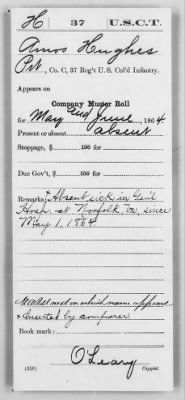 H 37 U.S.C.T.
Amos Hughes
Pvt., Co. C, 37 Reg't U.S. Col'd Infantry.
Appears on
Company Muster Roll
for May and June, 1864.
Present or absent absent
Stoppage, $ 100 for
Due Gov't, $ 100 for
Remarks: + Absent sick in Gen'l
Hosp. at Norfolk, Va, since
May 1, 1864.
in which name appears
+ Inserted by comparer
Book mark:
O'Leary
(358) Copyist.